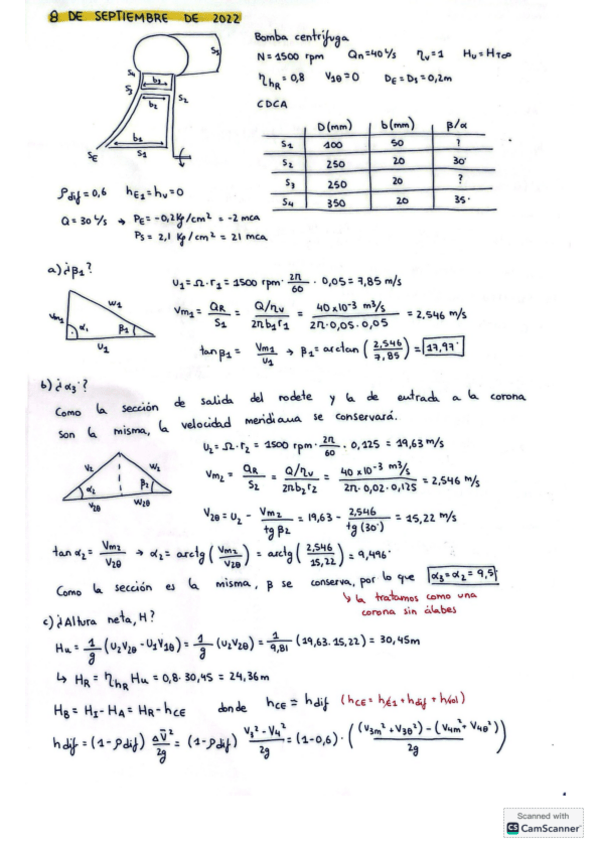 8 DE SEPTIEMBRE DE 2022
Bomba centrífuga
N = 1500 rpm Qn = 40 L/s ηv = 1 Hu = HT∞
ηhR = 0,8 V1θ = 0 DE = DS = 0,2m
CDCA
S5
S4
S3
b3
b2
S2
b1
S1
SE
D(mm) b(mm) β/α
S1 100 50 ?
S2 250 20 30°
S3 250 20 ?
S4 350 20 35°
ρdif = 0,6 hE1 = hv = 0
Q = 30 L/s → PE = -0,2 Kg/cm² = -2 mca
PS = 2,1 Kg/cm² = 21 mca
a) ¿β1?
Vm1 α1 W1 β1 U1
U1 = Ω · r1 = 1500 rpm · 2π/60 · 0,05 = 7,85 m/s
Vm1 = QR/S1 = Q/ηv / 2πb1r1 = 40×10⁻³ m³/s / 2π·0,05·0,05 = 2,546 m/s
tanβ1 = Vm1/U1 → β1 = arctan (2,546/7,85) = 17,97°
b) ¿α3?
Como la sección de salida del rodete y la de entrada a la corona
son la misma, la velocidad meridiana se conservará.
U2 = Ω · r2 = 1500 rpm · 2π/60 · 0,125 = 19,63 m/s
V2 W2 α2 β2 V2θ W2θ
Vm2 = QR/S2 = Q/ηv / 2πb2r2 = 40×10⁻³ m³/s / 2π·0,02·0,125 = 2,546 m/s
V2θ = U2 - Vm2/tgβ2 = 19,63 - 2,546/tg(30°) = 15,22 m/s
tanα2 = Vm2/V2θ → α2 = arctg (Vm2/V2θ) = arctg (2,546/15,22) = 9,496°
Como la sección es la misma, β se conserva, por lo que α3 = α2 = 9,5°
↳ la tratamos como una
corona sin álabes
c) ¿Altura neta, H?
Hu = 1/g (U2V2θ - U1V1θ) = 1/g (U2V2θ) = 1/9,81 (19,63·15,22) = 30,45m
↳ HR = ηhR Hu = 0,8 · 30,45 = 24,36m
HB = HI - HA = HR - hCE donde hCE = hdif (hCE = hE1 + hdif + hvol)
hdif = (1-ρdif) ΔV²/2g = (1-ρdif) V3² - V4²/2g = (1-0,6) · ((V3m² + V3θ²) - (V4m² + V4θ²)/2g)
Scanned with
CS CamScanner